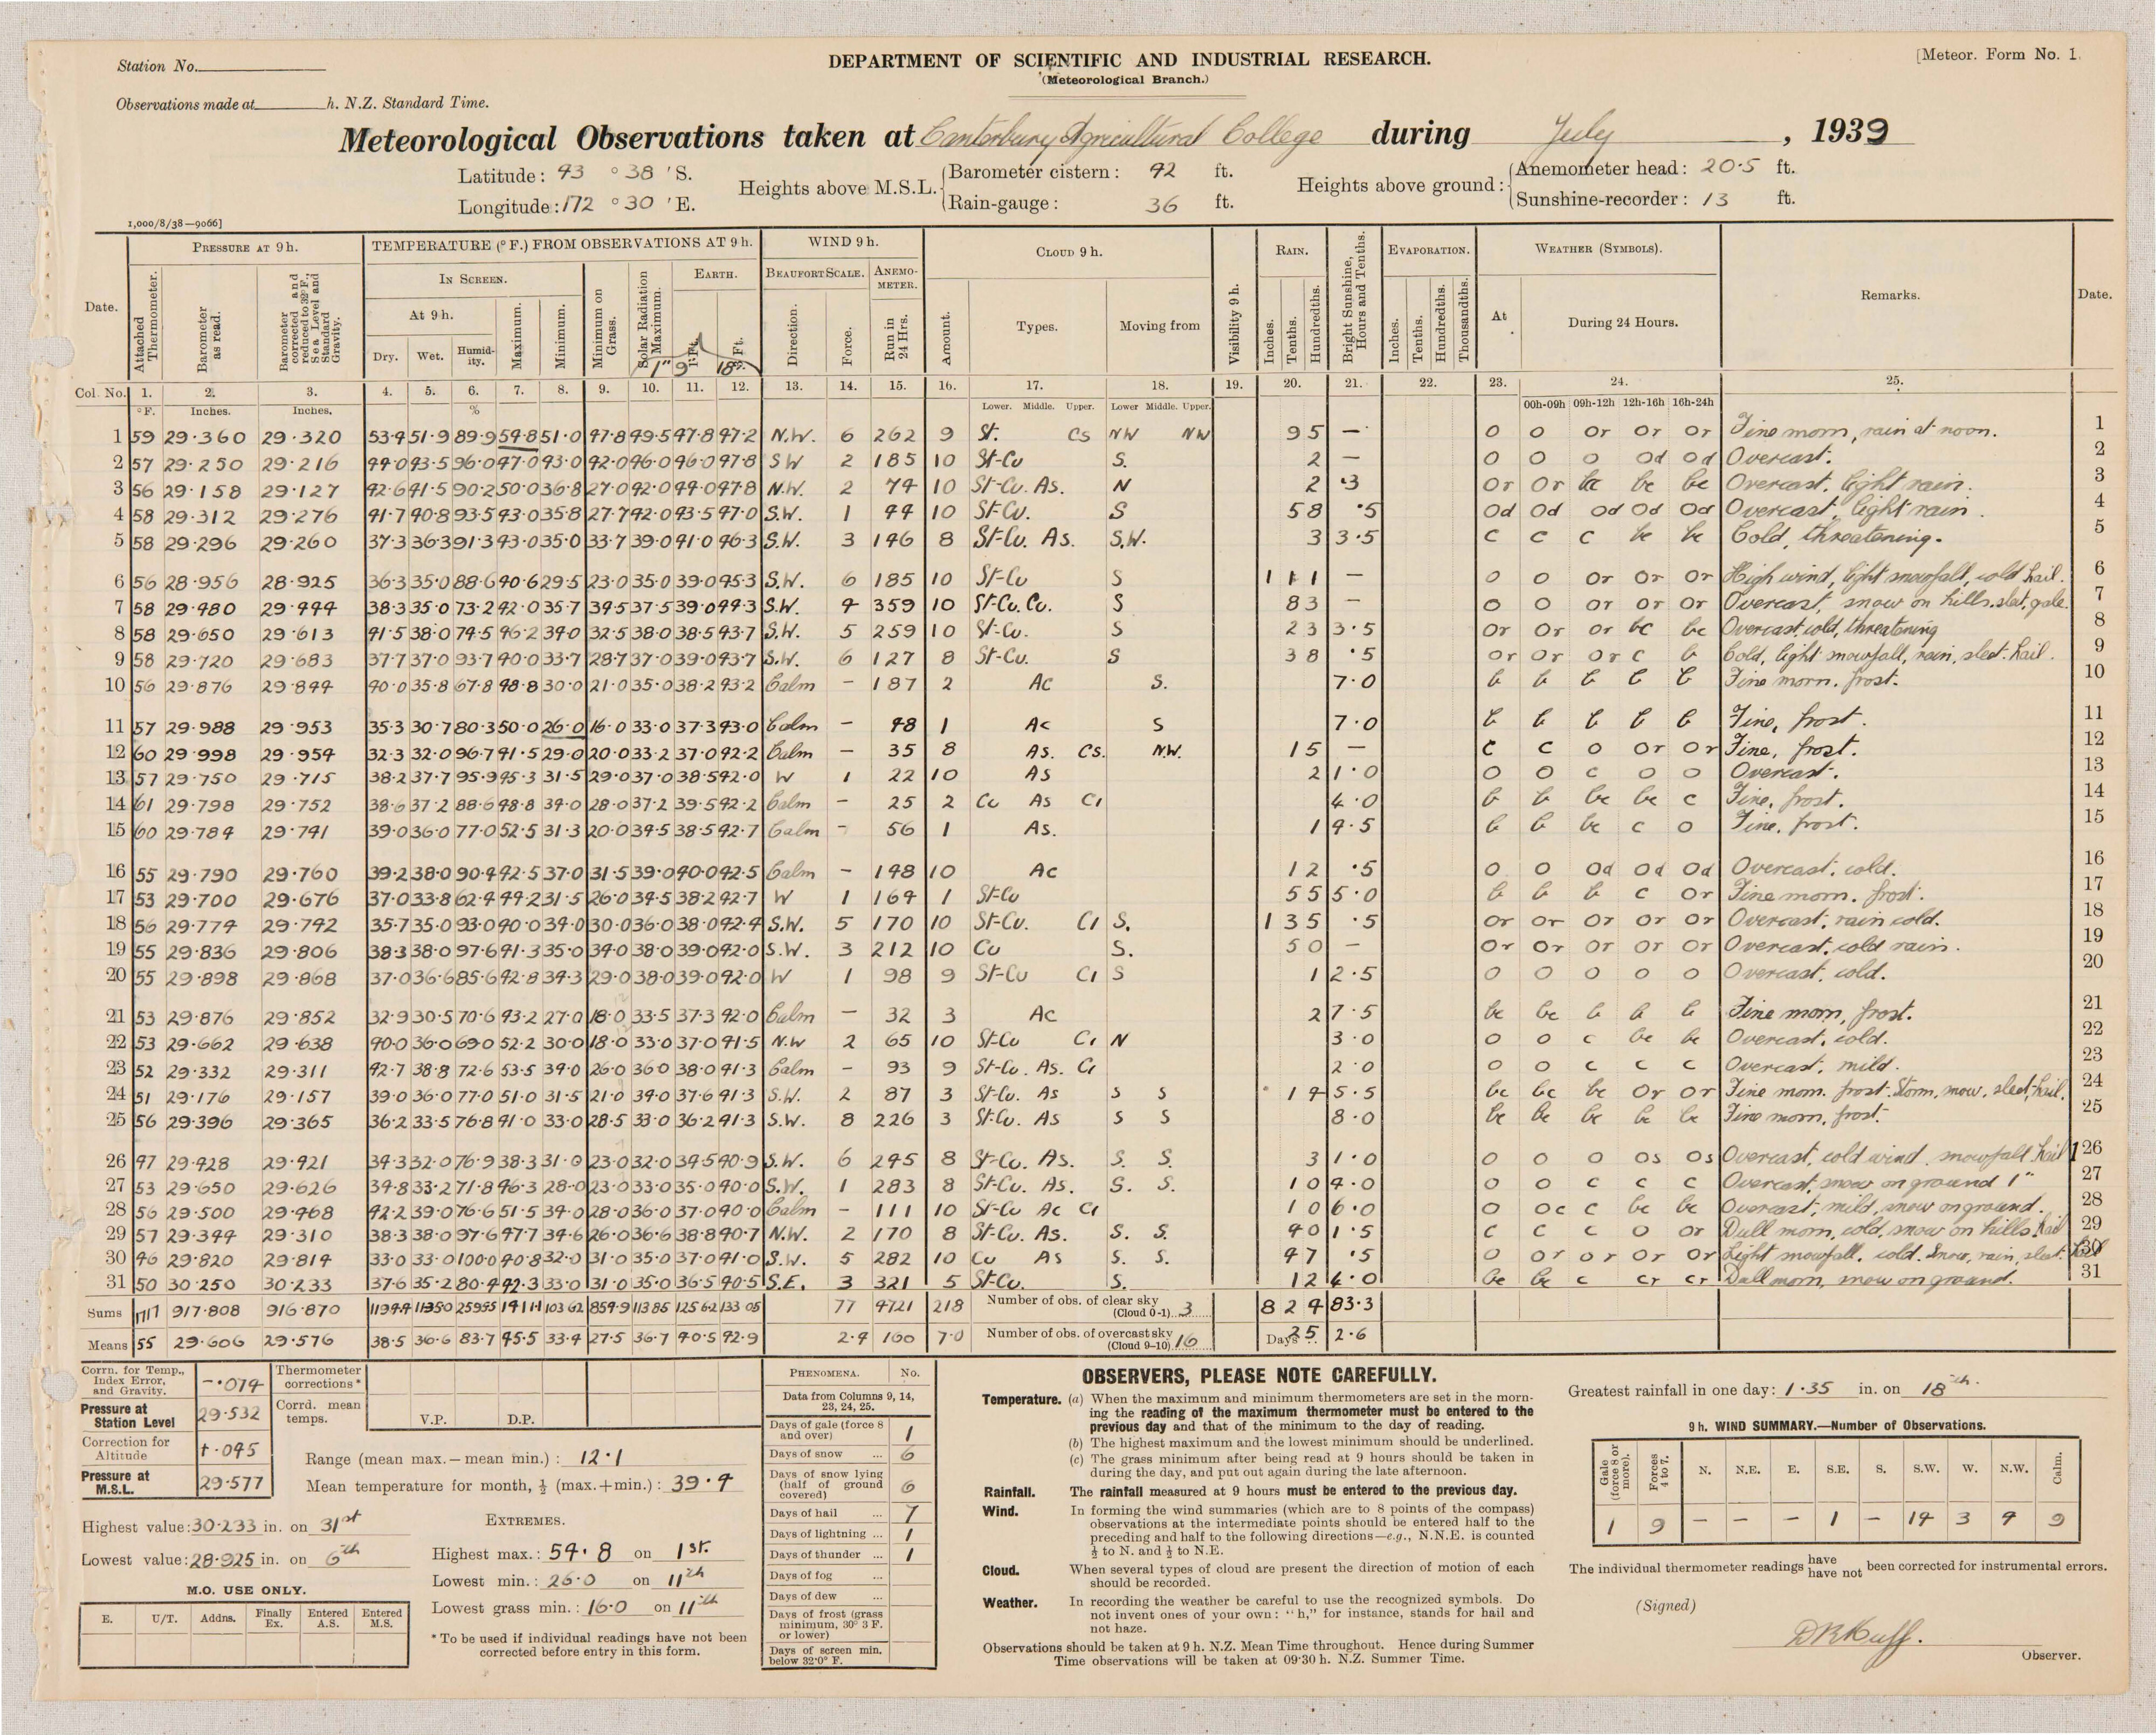 Station No.
DEPARTMENT OF SCIENTIFIC AND INDUSTRIAL RESEARCH.
[Meteor. Form No. 1.
(Meteorological Branch.)
Observations made at h. N.Z. Standard Time.
Meteorological Observations taken at Canterbury Agricultural College during July, 1939
Latitude: 43 ° 38 ' S. Heights above M.S.L. Barometer cistern: 42 ft. Heights above ground: Anemometer head: 20·5 ft.
Longitude: 172 ° 30 ' E. Rain-gauge: 36 ft. Sunshine-recorder: 13 ft.
1,000/8/38—9066]
Date. PRESSURE AT 9 h. TEMPERATURE (° F.) FROM OBSERVATIONS AT 9 h. WIND 9 h. CLOUD 9 h. Visibility 9 h. RAIN. Bright Sunshine, Hours and Tenths. EVAPORATION. WEATHER (SYMBOLS). Remarks. Date.
Attached Thermometer. Barometer as read. Barometer corrected and reduced to 32° F., Sea Level and Standard Gravity. IN SCREEN. At 9 h. Dry. Wet. Humidity. Maximum. Minimum. Minimum on Grass. Solar Radiation Maximum. EARTH. 1 Ft. Ft. 1" 9" 18" BEAUFORT SCALE. Direction. Force. ANEMOMETER. Run in 24 Hrs. Amount. Types. Moving from Inches. Tenths. Hundredths. Inches. Tenths. Hundredths. Thousandths. At During 24 Hours.
Col. No. 1. 2. 3. 4. 5. 6. 7. 8. 9. 10. 11. 12. 13. 14. 15. 16. 17. 18. 19. 20. 21. 22. 23. 24. 25.
°F. Inches. Inches. % Lower. Middle. Upper. Lower Middle Upper. 00h-09h 09h-12h 12h-16h 16h-24h
1 59 29·360 29·320 53·4 51·9 89·9 59·8 51·0 47·8 49·5 47·8 47·2 N.W. 6 262 9 St. Cs NW NW 95 — o o or or or Fine morn, rain at noon. 1
2 57 29·250 29·216 44·0 43·5 96·0 47·0 43·0 42·0 46·0 46·0 47·8 SW 2 185 10 St-Cu S. 2 — o o o od od Overcast. 2
3 56 29·158 29·127 42·6 41·5 90·2 50·0 36·8 27·0 42·0 44·0 47·8 N.W. 2 74 10 St-Cu. As. N 2 ·3 or or bc bc bc Overcast, light rain. 3
4 58 29·312 29·276 41·7 40·8 93·5 43·0 35·8 27·7 42·0 43·5 47·0 S.W. 1 44 10 St-Cu. S 58 ·5 od od od od od Overcast, light rain. 4
5 58 29·296 29·260 37·3 36·3 91·3 43·0 35·0 33·7 39·0 41·0 46·3 S.W. 3 146 8 St-Cu. As. S.W. 3 3·5 c c c bc bc Cold, threatening. 5
6 56 28·956 28·925 36·3 35·0 88·6 40·6 29·5 23·0 35·0 39·0 45·3 S.W. 6 185 10 St-Cu S 1 11 — o o or or or High wind, light snowfall, cold hail. 6
7 58 29·480 29·444 38·3 35·0 73·2 42·0 35·7 34·5 37·5 39·0 44·3 S.W. 4 359 10 St-Cu. Cu. S 83 — o o or or or Overcast, snow on hills. sleet, gale. 7
8 58 29·650 29·613 41·5 38·0 74·5 46·2 34·0 32·5 38·0 38·5 43·7 S.W. 5 259 10 St-Cu. S 23 3·5 or or or bc bc Overcast, cold, threatening 8
9 58 29·720 29·683 37·7 37·0 93·7 40·0 33·7 28·7 37·0 39·0 43·7 S.W. 6 127 8 St-Cu. S 38 ·5 or or or c b Cold, light snowfall, rain, sleet. hail. 9
10 56 29·876 29·844 40·0 35·8 67·8 48·8 30·0 21·0 35·0 38·2 43·2 Calm - 187 2 Ac S. 7·0 b b b b b Fine morn. frost. 10
11 57 29·988 29·953 35·3 30·7 80·3 50·0 26·0 16·0 33·0 37·3 43·0 Calm - 48 1 Ac S 7·0 b b b b b Fine, frost. 11
12 60 29·998 29·954 32·3 32·0 96·7 41·5 29·0 20·0 33·2 37·0 42·2 Calm - 35 8 As. Cs. N.W. 15 — c c o or or Fine, frost. 12
13 57 29·750 29·715 38·2 37·7 95·9 45·3 31·5 29·0 37·0 38·5 42·0 W 1 22 10 As 2 1·0 o o c o o Overcast. 13
14 61 29·798 29·752 38·6 37·2 88·6 48·8 34·0 28·0 37·2 39·5 42·2 Calm - 25 2 Cu As Ci 4·0 b b bc bc c Fine, frost. 14
15 60 29·784 29·741 39·0 36·0 77·0 52·5 31·3 20·0 34·5 38·5 42·7 Calm - 56 1 As. 1 4·5 b b bc c o Fine, frost. 15
16 55 29·790 29·760 39·2 38·0 90·4 42·5 37·0 31·5 39·0 40·0 42·5 Calm - 148 10 Ac 12 ·5 o o od od od Overcast, cold. 16
17 53 29·700 29·676 37·0 33·8 62·4 44·2 31·5 26·0 34·5 38·2 42·7 W 1 164 1 St-Cu 55 5·0 b b b c or Fine morn. frost. 17
18 56 29·774 29·742 35·7 35·0 93·0 40·0 34·0 30·0 36·0 38·0 42·4 S.W. 5 170 10 St-Cu. Ci S. 1 35 ·5 or or or or or Overcast, rain cold. 18
19 55 29·836 29·806 38·3 38·0 97·6 41·3 35·0 34·0 38·0 39·0 42·0 S.W. 3 212 10 Cu S. 50 — or or or or or Overcast, cold rain. 19
20 55 29·898 29·868 37·0 36·6 85·6 42·8 34·3 29·0 38·0 39·0 42·0 W 1 98 9 St-Cu Ci S 1 2·5 o o o o o Overcast, cold. 20
21 53 29·876 29·852 32·9 30·5 70·6 43·2 27·0 18·0 33·5 37·3 42·0 Calm - 32 3 Ac 2 7·5 bc bc b b b Fine morn, frost. 21
22 53 29·662 29·638 40·0 36·0 69·0 52·2 30·0 18·0 33·0 37·0 41·5 N.W 2 65 10 St-Cu Ci N 3·0 o o c bc bc Overcast, cold. 22
23 52 29·332 29·311 42·7 38·8 72·6 53·5 34·0 26·0 36·0 38·0 41·3 Calm - 93 9 St-Cu. As. Ci 2·0 o o c c c Overcast, mild. 23
24 51 29·176 29·157 39·0 36·0 77·0 51·0 31·5 21·0 34·0 37·6 41·3 S.W. 2 87 3 St-Cu. As S S 14 5·5 bc bc bc or or Fine morn. frost. Storm, snow, sleet, hail. 24
25 56 29·396 29·365 36·2 33·5 76·8 41·0 33·0 28·5 33·0 36·2 41·3 S.W. 8 226 3 St-Cu. As S S 8·0 bc bc bc bc bc Fine morn, frost. 25
26 47 29·428 29·421 34·3 32·0 76·9 38·3 31·0 23·0 32·0 34·5 40·9 S.W. 6 245 8 St-Cu. As. S. S. 3 1·0 o o o os os Overcast, cold wind. snowfall. hail 26
27 53 29·650 29·626 34·8 33·2 71·8 46·3 28·0 23·0 33·0 35·0 40·0 S.W. 1 283 8 St-Cu. As. S. S. 10 4·0 o o c c c Overcast, snow on ground 1" 27
28 56 29·500 29·468 42·2 39·0 76·6 51·5 34·0 28·0 36·0 37·0 40·0 Calm - 111 10 St-Cu Ac Ci 10 6·0 o oc c bc bc Overcast, mild, snow on ground. 28
29 57 29·344 29·310 38·3 38·0 97·6 47·7 34·6 26·0 36·6 38·8 40·7 N.W. 2 170 8 St-Cu. As. S. S. 40 1·5 c c c o or Dull morn, cold, snow on hills. hail 29
30 46 29·820 29·814 33·0 33·0 100·0 40·8 32·0 31·0 35·0 37·0 41·0 S.W. 5 282 10 Cu As S. S. 47 ·5 o or or or or Light snowfall, cold. Snow, rain, sleet. hail 30
31 50 30·250 30·233 37·6 35·2 80·4 42·3 33·0 31·0 35·0 36·5 40·5 S.E. 3 321 5 St-Cu. S. 12 4·0 bc bc c cr cr Dull morn, snow on ground. 31
Sums 1717 917·808 916·870 1194·4 1135·0 2595·5 1411·1 1036·2 859·9 1138·5 1256·2 1330·5 77 4721 218 Number of obs. of clear sky (Cloud 0-1) 3 8 24 83·3
Means 55 29·606 29·576 38·5 36·6 83·7 45·5 33·4 27·5 36·7 40·5 42·9 2·4 160 7·0 Number of obs. of overcast sky (Cloud 9-10) 16 Days 25 2·6
Corrn. for Temp., Index Error, and Gravity. -·074
Pressure at Station Level 29·532
Correction for Altitude +·045
Pressure at M.S.L. 29·577
Highest value: 30·233 in. on 31st
Lowest value: 28·925 in. on 6th
M.O. USE ONLY.
E. U/T. Addns. Finally Ex. Entered A.S. Entered M.S.
Thermometer corrections*
Corrd. mean temps. V.P. D.P.
Range (mean max.—mean min.): 12·1
Mean temperature for month, ½ (max.+min.): 39·4
EXTREMES.
Highest max.: 59·8 on 1st.
Lowest min.: 26·0 on 11th
Lowest grass min.: 16·0 on 11th
* To be used if individual readings have not been corrected before entry in this form.
PHENOMENA. No.
Data from Columns 9, 14, 23, 24, 25.
Days of gale (force 8 and over) 1
Days of snow ... 6
Days of snow lying (half of ground covered) 6
Days of hail ... 7
Days of lightning ... 1
Days of thunder ... 1
Days of fog ...
Days of dew ...
Days of frost (grass minimum, 30° 3 F. or lower)
Days of screen min. below 32·0° F.
OBSERVERS, PLEASE NOTE CAREFULLY.
Temperature. (a) When the maximum and minimum thermometers are set in the morn-
ing the reading of the maximum thermometer must be entered to the
previous day and that of the minimum to the day of reading.
(b) The highest maximum and the lowest minimum should be underlined.
(c) The grass minimum after being read at 9 hours should be taken in
during the day, and put out again during the late afternoon.
Rainfall. The rainfall measured at 9 hours must be entered to the previous day.
Wind. In forming the wind summaries (which are to 8 points of the compass)
observations at the intermediate points should be entered half to the
preceding and half to the following directions—e.g., N.N.E. is counted
½ to N. and ½ to N.E.
Cloud. When several types of cloud are present the direction of motion of each
should be recorded.
Weather. In recording the weather be careful to use the recognized symbols. Do
not invent ones of your own: "h," for instance, stands for hail and
not haze.
Observations should be taken at 9 h. N.Z. Mean Time throughout. Hence during Summer
Time observations will be taken at 09·30 h. N.Z. Summer Time.
Greatest rainfall in one day: 1·35 in. on 18th.
9 h. WIND SUMMARY.—Number of Observations.
Gale (force 8 or more). Forces 4 to 7. N. N.E. E. S.E. S. S.W. W. N.W. Calm.
1 9 - - - 1 - 14 3 4 9
The individual thermometer readings have / have not been corrected for instrumental errors.
(Signed)
Observer.